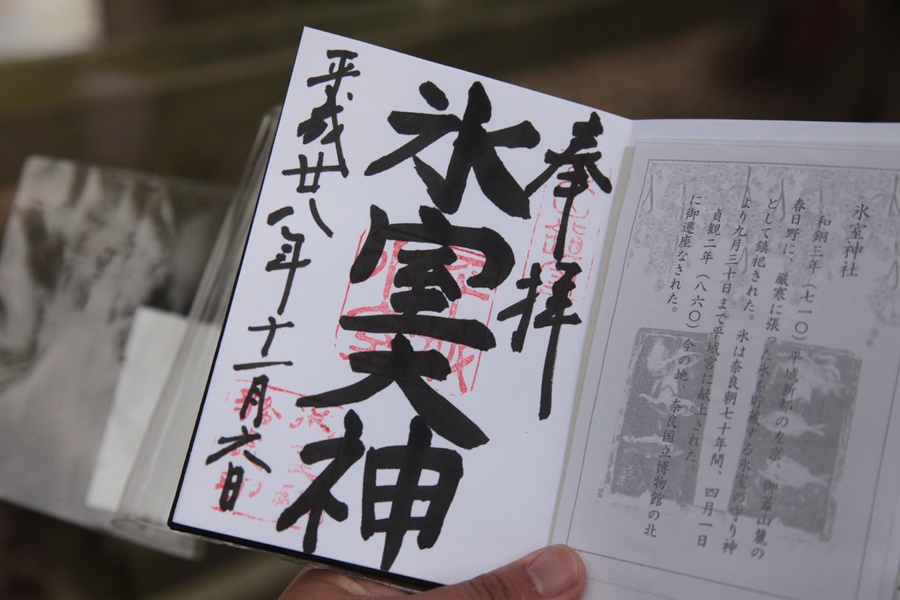 氷室神社
和銅三年（七一〇）平城新都の左京、御蓋山麓の
春日野に、厳寒に張った氷を貯蔵する氷室の守り神
として鎮祀された。氷は奈良朝七十年間、四月一日
より九月三十日まで平城宮に献上された。
貞観二年（八六〇）今の地、奈良国立博物館の北
に御遷座なされた。
奉拝
氷室大神
平成廿八年十一月六日